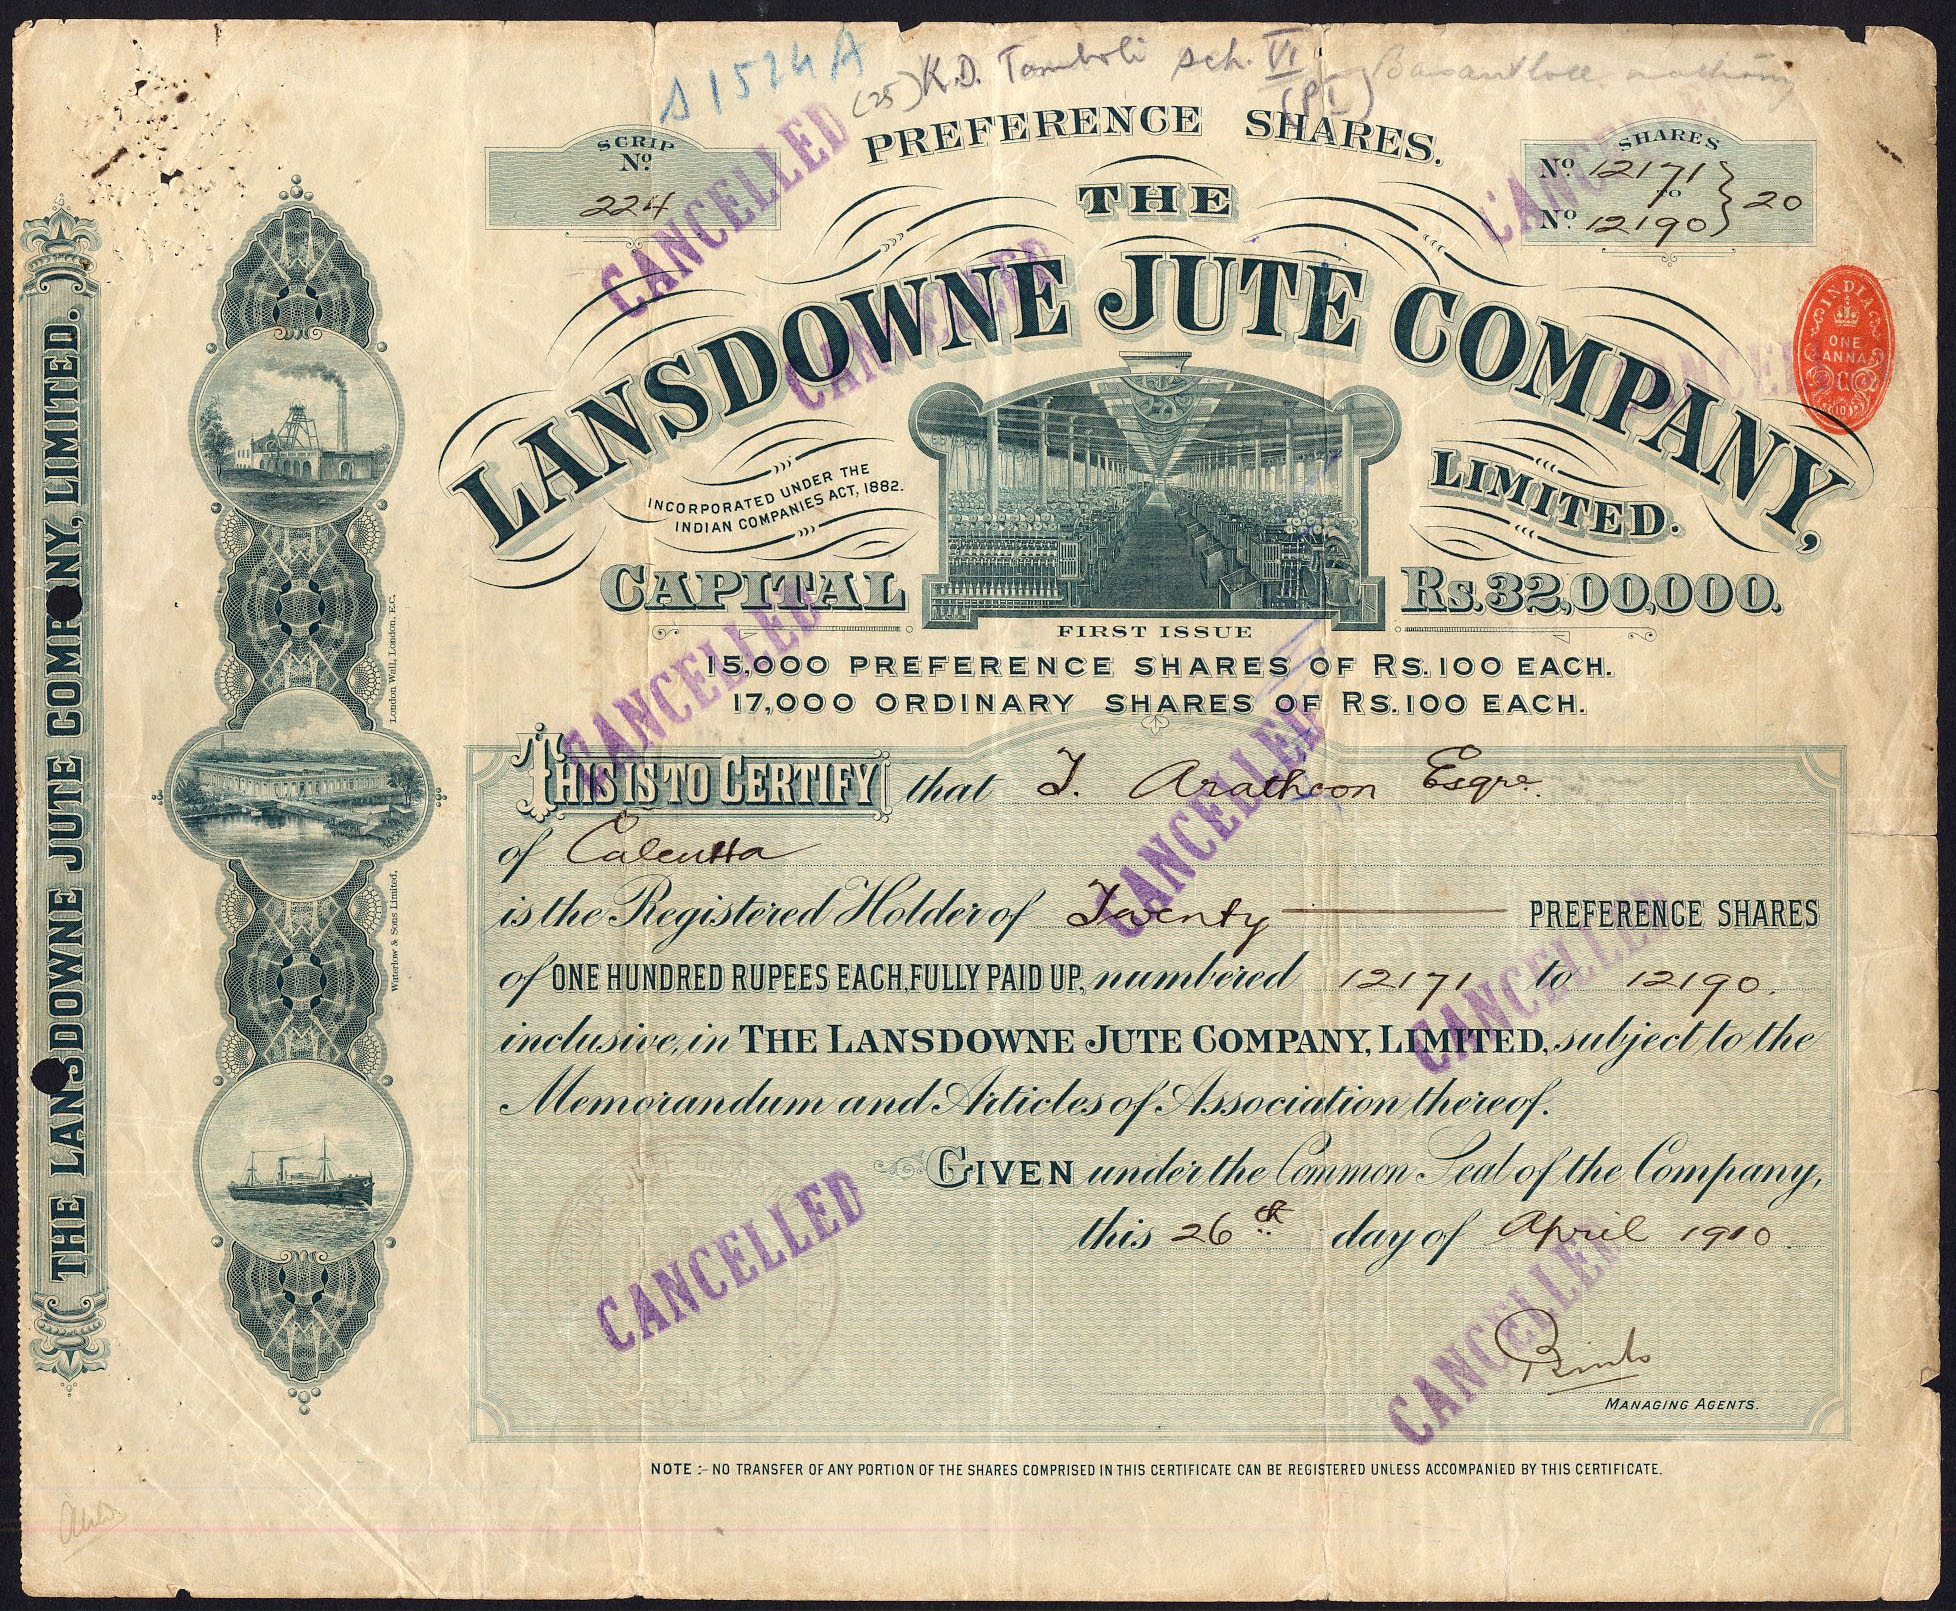 S1524A
(25) K.D. Tamboli sch. VI
(PI)
PREFERENCE SHARES.
SCRIP
No.
224
SHARES
No. 12171
TO
No. 12190
20
THE
LANSDOWNE JUTE COMPANY,
LIMITED.
INCORPORATED UNDER THE
INDIAN COMPANIES ACT, 1882.
INDIA
ONE
ANNA
CAPITAL Rs.32,00,000.
FIRST ISSUE
15,000 PREFERENCE SHARES OF RS.100 EACH.
17,000 ORDINARY SHARES OF RS.100 EACH.
THIS IS TO CERTIFY that T. Arathoon Esqre.
of Calcutta
is the Registered Holder of Twenty PREFERENCE SHARES
of ONE HUNDRED RUPEES EACH, FULLY PAID UP, numbered 12171 to 12190.
inclusive, in THE LANSDOWNE JUTE COMPANY, LIMITED, subject to the
Memorandum and Articles of Association thereof.
GIVEN under the Common Seal of the Company,
this 26th day of April 1910.
MANAGING AGENTS.
NOTE :- NO TRANSFER OF ANY PORTION OF THE SHARES COMPRISED IN THIS CERTIFICATE CAN BE REGISTERED UNLESS ACCOMPANIED BY THIS CERTIFICATE.
THE LANSDOWNE JUTE COMPANY, LIMITED.
Waterlow & Sons Limited, London Wall, London. E.C.
CANCELLED
CANCELLED
CANCELLED
CANCELLED
CANCELLED
CANCELLED
CANCELLED
CANCELLED
CANCELLED
CANCELLED